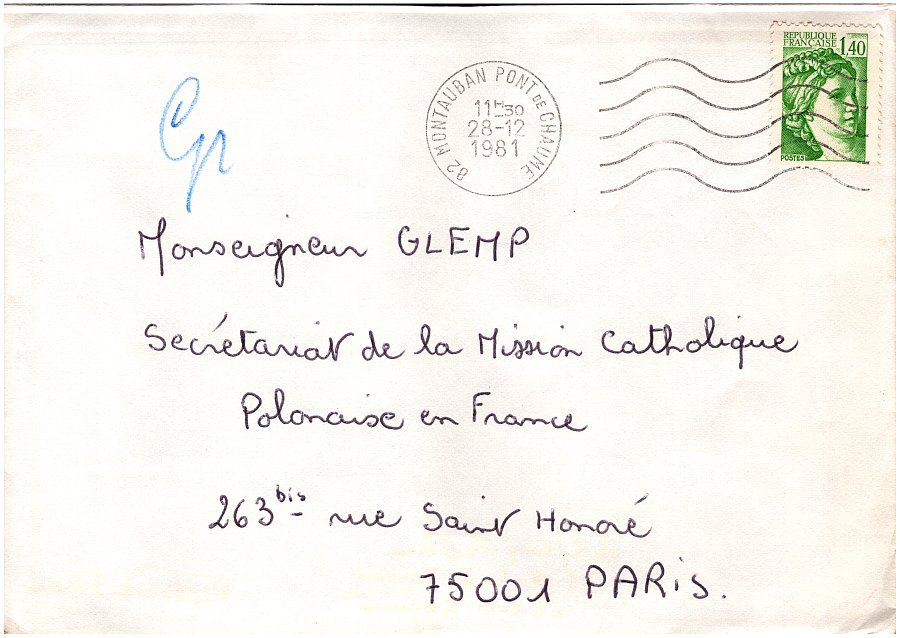 REPUBLIQUE
FRANÇAISE 1,40
POSTES
82 MONTAUBAN PONT DE CHAUME
11H30
28-12
1981
Monseigneur GLEMP
Secrétariat de la Mission Catholique
Polonaise en France
263 bis rue Saint Honoré
75001 PARIS.